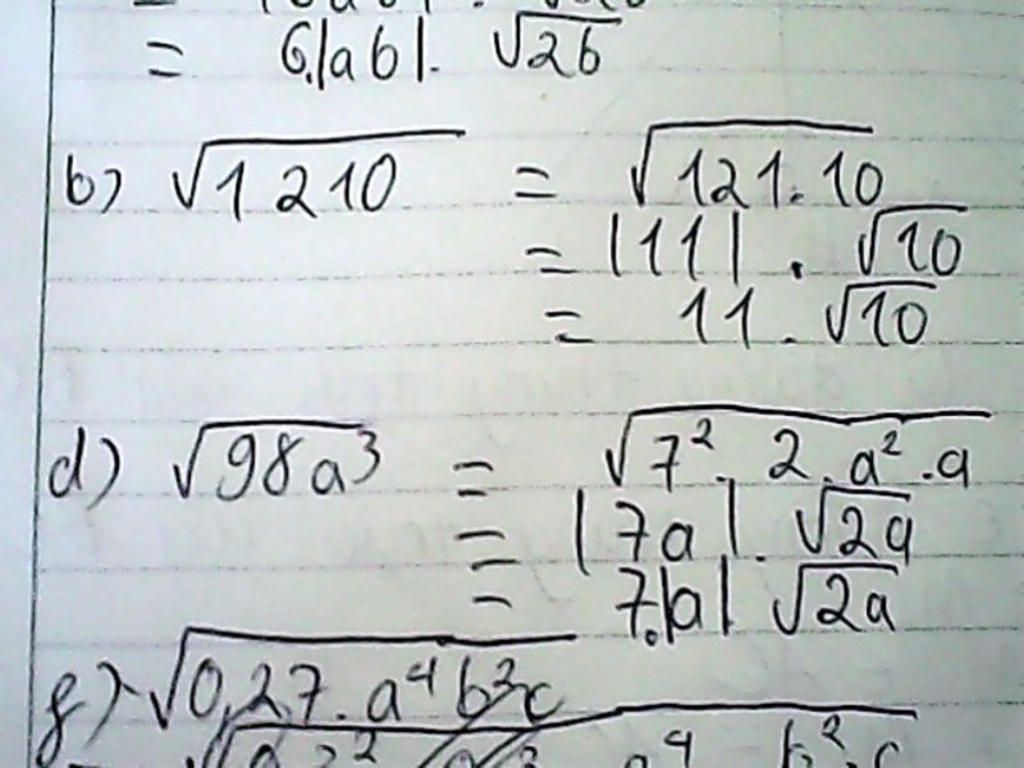 = 6.|ab|. √2b
b) √1210 = √121.10
= |11| . √10
= 11 . √10
d) √98a³ = √7². 2. a².a
= |7a|. √2a
= 7.|a| √2a
√0,27. a⁴ b³c